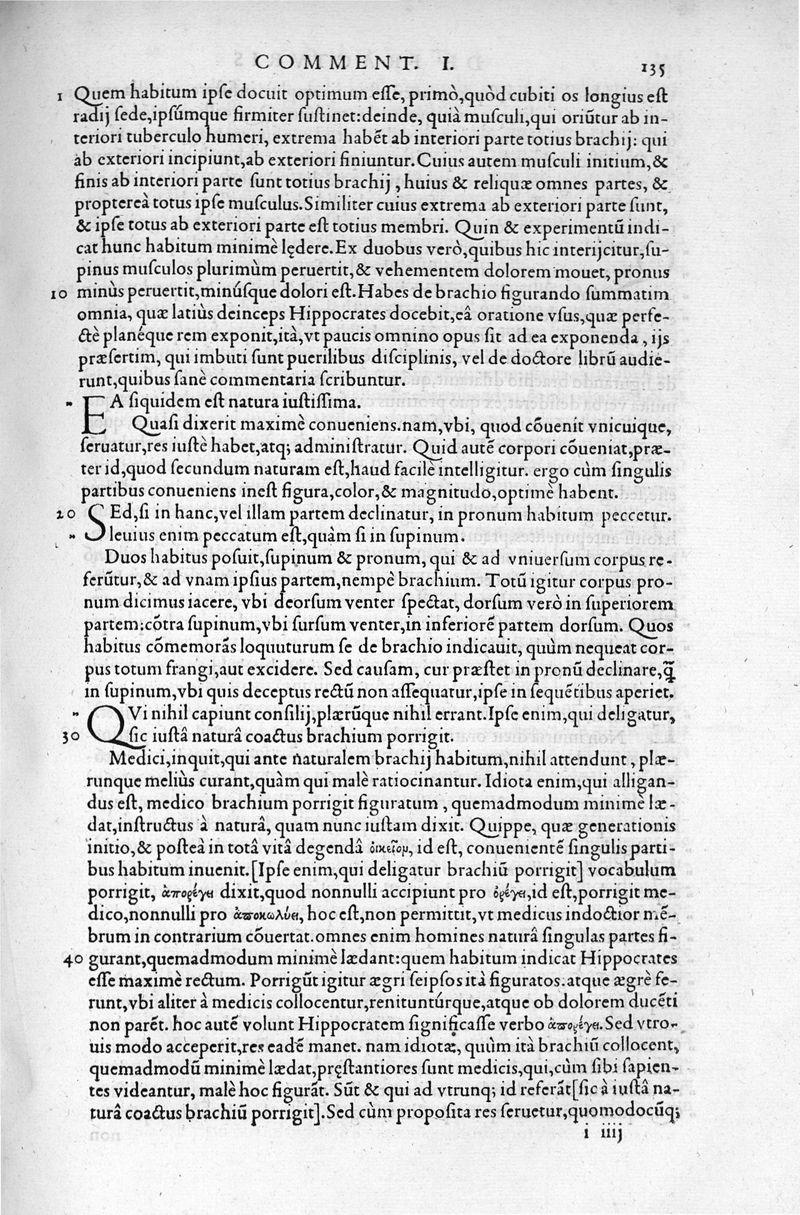 COMMENT. I. 135
1 Quem habitum ipſe docuit optimum eſſe, primò,quòd cubiti os longius eſt
radij ſede,ipſúmque firmiter ſuſtinet:deinde, quià muſculi,qui oriũtur ab in-
teriori tuberculo humeri, extrema habẽt ab interiori parte totius brachij: qui
ab exteriori incipiunt,ab exteriori finiuntur.Cuius autem muſculi initium,&
finis ab interiori parte ſunt totius brachij , huius & reliquæ omnes partes, &
proptereà totus ipſe muſculus.Similiter cuius extrema ab exteriori parte ſunt,
& ipſe totus ab exteriori parte eſt totius membri. Quin & experimentũ indi-
cat hunc habitum minimè lędere.Ex duobus verò,quibus hic interijcitur,ſu-
pinus muſculos plurimùm peruertit,& vehementem dolorem mouet, pronus
10 minùs peruertit,minúſque dolori eſt.Habes de brachio figurando ſummatim
omnia, quæ latiùs deinceps Hippocrates docebit,eâ oratione vſus,quæ perfe-
ctè planéque rem exponit,ità,vt paucis omnino opus ſit ad ea exponenda , ijs
præſertim, qui imbuti ſunt puerilibus diſciplinis, vel de doctore librũ audie-
runt,quibus ſanè commentaria ſcribuntur.
" EA ſiquidem eſt natura iuſtiſſima.
Quaſi dixerit maximè conueniens.nam,vbi, quod cõuenit vnicuique,
ſeruatur,res iuſtè habet,atq; adminiſtratur. Quid autẽ corpori cõueniat,præ-
ter id,quod ſecundum naturam eſt,haud facilè intelligitur. ergo cùm ſingulis
partibus conueniens ineſt figura,color,& magnitudo,optimè habent.
20 SEd,ſi in hanc,vel illam partem declinatur, in pronum habitum peccetur.
" leuius enim peccatum eſt,quàm ſi in ſupinum.
Duos habitus poſuit,ſupinum & pronum, qui & ad vniuerſum corpus re-
ferũtur,& ad vnam ipſius partem,nempè brachium. Totũ igitur corpus pro-
num dicimus iacere, vbi deorſum venter ſpectat, dorſum verò in ſuperiorem
partem:cõtra ſupinum,vbi ſurſum venter,in inferiorẽ partem dorſum. Quos
habitus cõmemorãs loquuturum ſe de brachio indicauit, quùm nequeat cor-
pus totum frangi,aut excidere. Sed cauſam, cur præſtet in pronũ declinare,q̃
in ſupinum,vbi quis deceptus rectũ non aſſequatur,ipſe in ſequẽtibus aperiet.
" QVi nihil capiunt conſilij,plærũque nihil errant.Ipſe enim,qui deligatur,
30 ſic iuſtâ naturâ coactus brachium porrigit.
Medici,inquit,qui ante naturalem brachij habitum,nihil attendunt , plæ-
runque meliùs curant,quàm qui malè ratiocinantur. Idiota enim,qui alligan-
dus eſt, medico brachium porrigit figuratum , quemadmodum minimè læ-
dat,inſtructus à naturâ, quam nunc iuſtam dixit. Quippe, quæ generationis
initio,& poſteà in totâ vitâ degendâ ὀικεῖομ, id eſt, conuenientẽ ſingulis parti-
bus habitum inuenit.[Ipſe enim,qui deligatur brachiũ porrigit] vocabulum
porrigit, ἀπορέγει dixit,quod nonnulli accipiunt pro ὀρέγει,id eſt,porrigit me-
dico,nonnulli pro ἀποκωλύει, hoc eſt,non permittit,vt medicus indoctior mẽ-
brum in contrarium cõuertat.omnes enim homines naturâ ſingulas partes fi-
40 gurant,quemadmodum minimè lædant:quem habitum indicat Hippocrates
eſſe maximè rectum. Porrigũt igitur ægri ſeipſos ità figuratos.atque ægrè fe-
runt,vbi aliter à medicis collocentur,renituntúrque,atque ob dolorem ducẽti
non parẽt. hoc autẽ volunt Hippocratem ſignificaſſe verbo ἀπορέγει.Sed vtro-
uis modo acceperit,res eadẽ manet. nam idiotæ, quùm ità brachiũ collocent,
quemadmodũ minimè lædat,pręſtantiores ſunt medicis,qui,cùm ſibi ſapien-
tes videantur, malè hoc figurãt. Sũt & qui ad vtrunq; id referãt[ſic à iuſtâ na-
turâ coactus brachiũ porrigit].Sed cùm propoſita res ſeruetur,quomodocũq;
i iiij